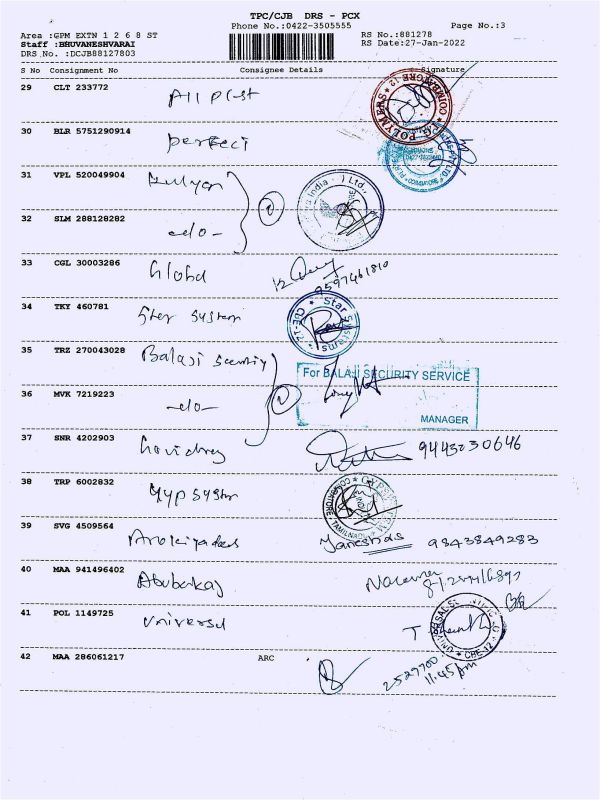 TPC/CJB DRS - PCX
Phone No.:0422-3505555
Page No.:3
Area :GPM EXTN 1 2 6 8 ST
RS No.:881278
Staff :BHUVANESHVARAI
RS Date:27-Jan-2022
DRS.No. :DCJB88127803
S No Consignment No Consignee Details Signature
29 CLT 233772
All plast
COIMBATORE 12 POLYMERS
30 BLR 5751290914
perfect
31 VPL 520049904
India Ltd.,
32 SLM 288128282
-do-
33 CGL 30003286
Global
9597461810
34 TKY 460781
Star System
Star Systems CBE-12
35 TRZ 270043028
Balaji Security
For BALAJI SECURITY SERVICE
36 MVK 7219223
-do-
MANAGER
37 SNR 4202903
9443230646
38 TRP 6002832
Gyp System
COIMBATORE TAMILNADU
39 SVG 4509564
Arokiyadass
9843849283
40 MAA 941496402
Abubakar
41 POL 1149725
Universal
CBE-12
42 MAA 286061217 ARC
2527700
11.45pm